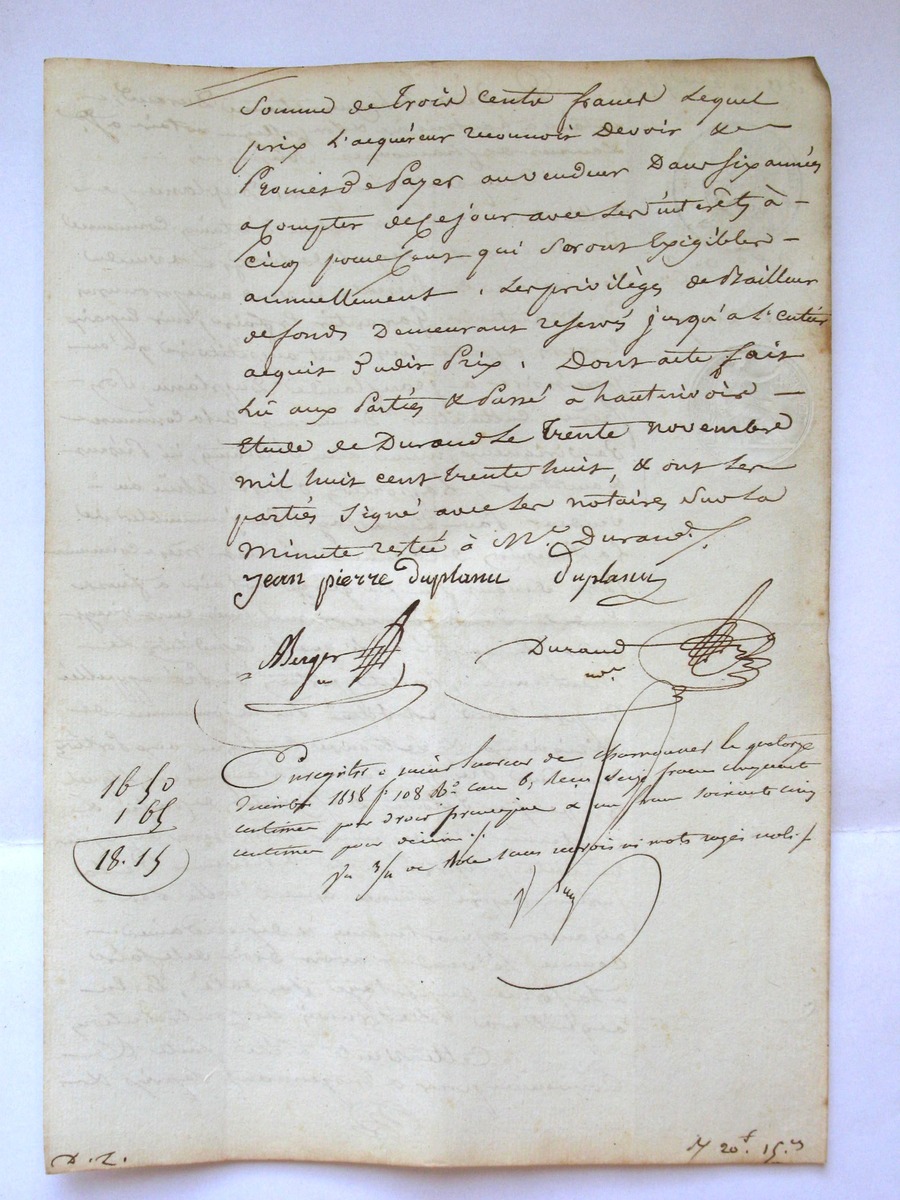 Somme de trois cents francs Lequel
prix L'acquéreur reconnoit Devoir &
Promet de Payer au vendeur Dans Six années
a Compter de Ce jour avec Les interêts à -
Cinq pour Cent qui Seront Exigibles -
annuellement. Les privilèges de Bailleur
de fonds Demeurant reservés jusqu'a L'entier
acquit dudit Prix. Dont acte fait
Lu aux Parties & Passé à hauterivoire -
Etude de Durand Le Trente novembre
mil huit cent trente huit, & ont Les
parties Signé avec Les notaires Sur La
Minute restée à Me. Durand.
jean pierre Duplanu Duplanu
Berger Durand
nore
Enregistré à Saint Laurent de Chamousset le quatorze
16 50
Décembre 1838 fo 108 Ro case 6, Reçu Seize francs cinquante
1 65
centimes pour droit principal & un franc soixante cinq
18.15
centimes pour décime
sans renvois ni mots rayés nuls
D. L.
20f. 15c